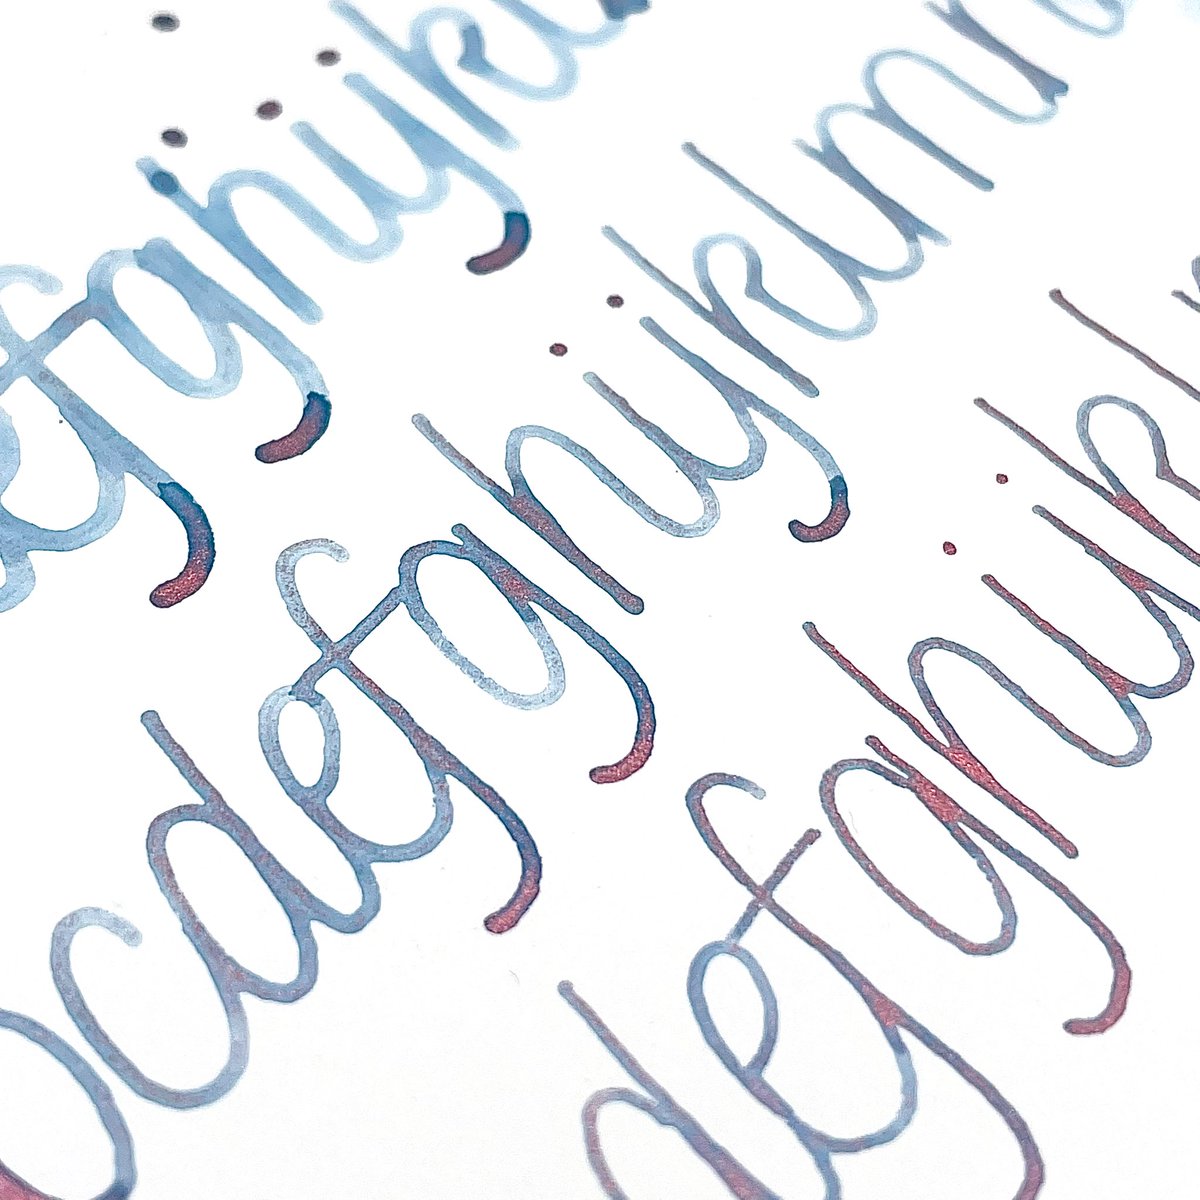 efghijkl
bcdefghijklmn
defghijkl